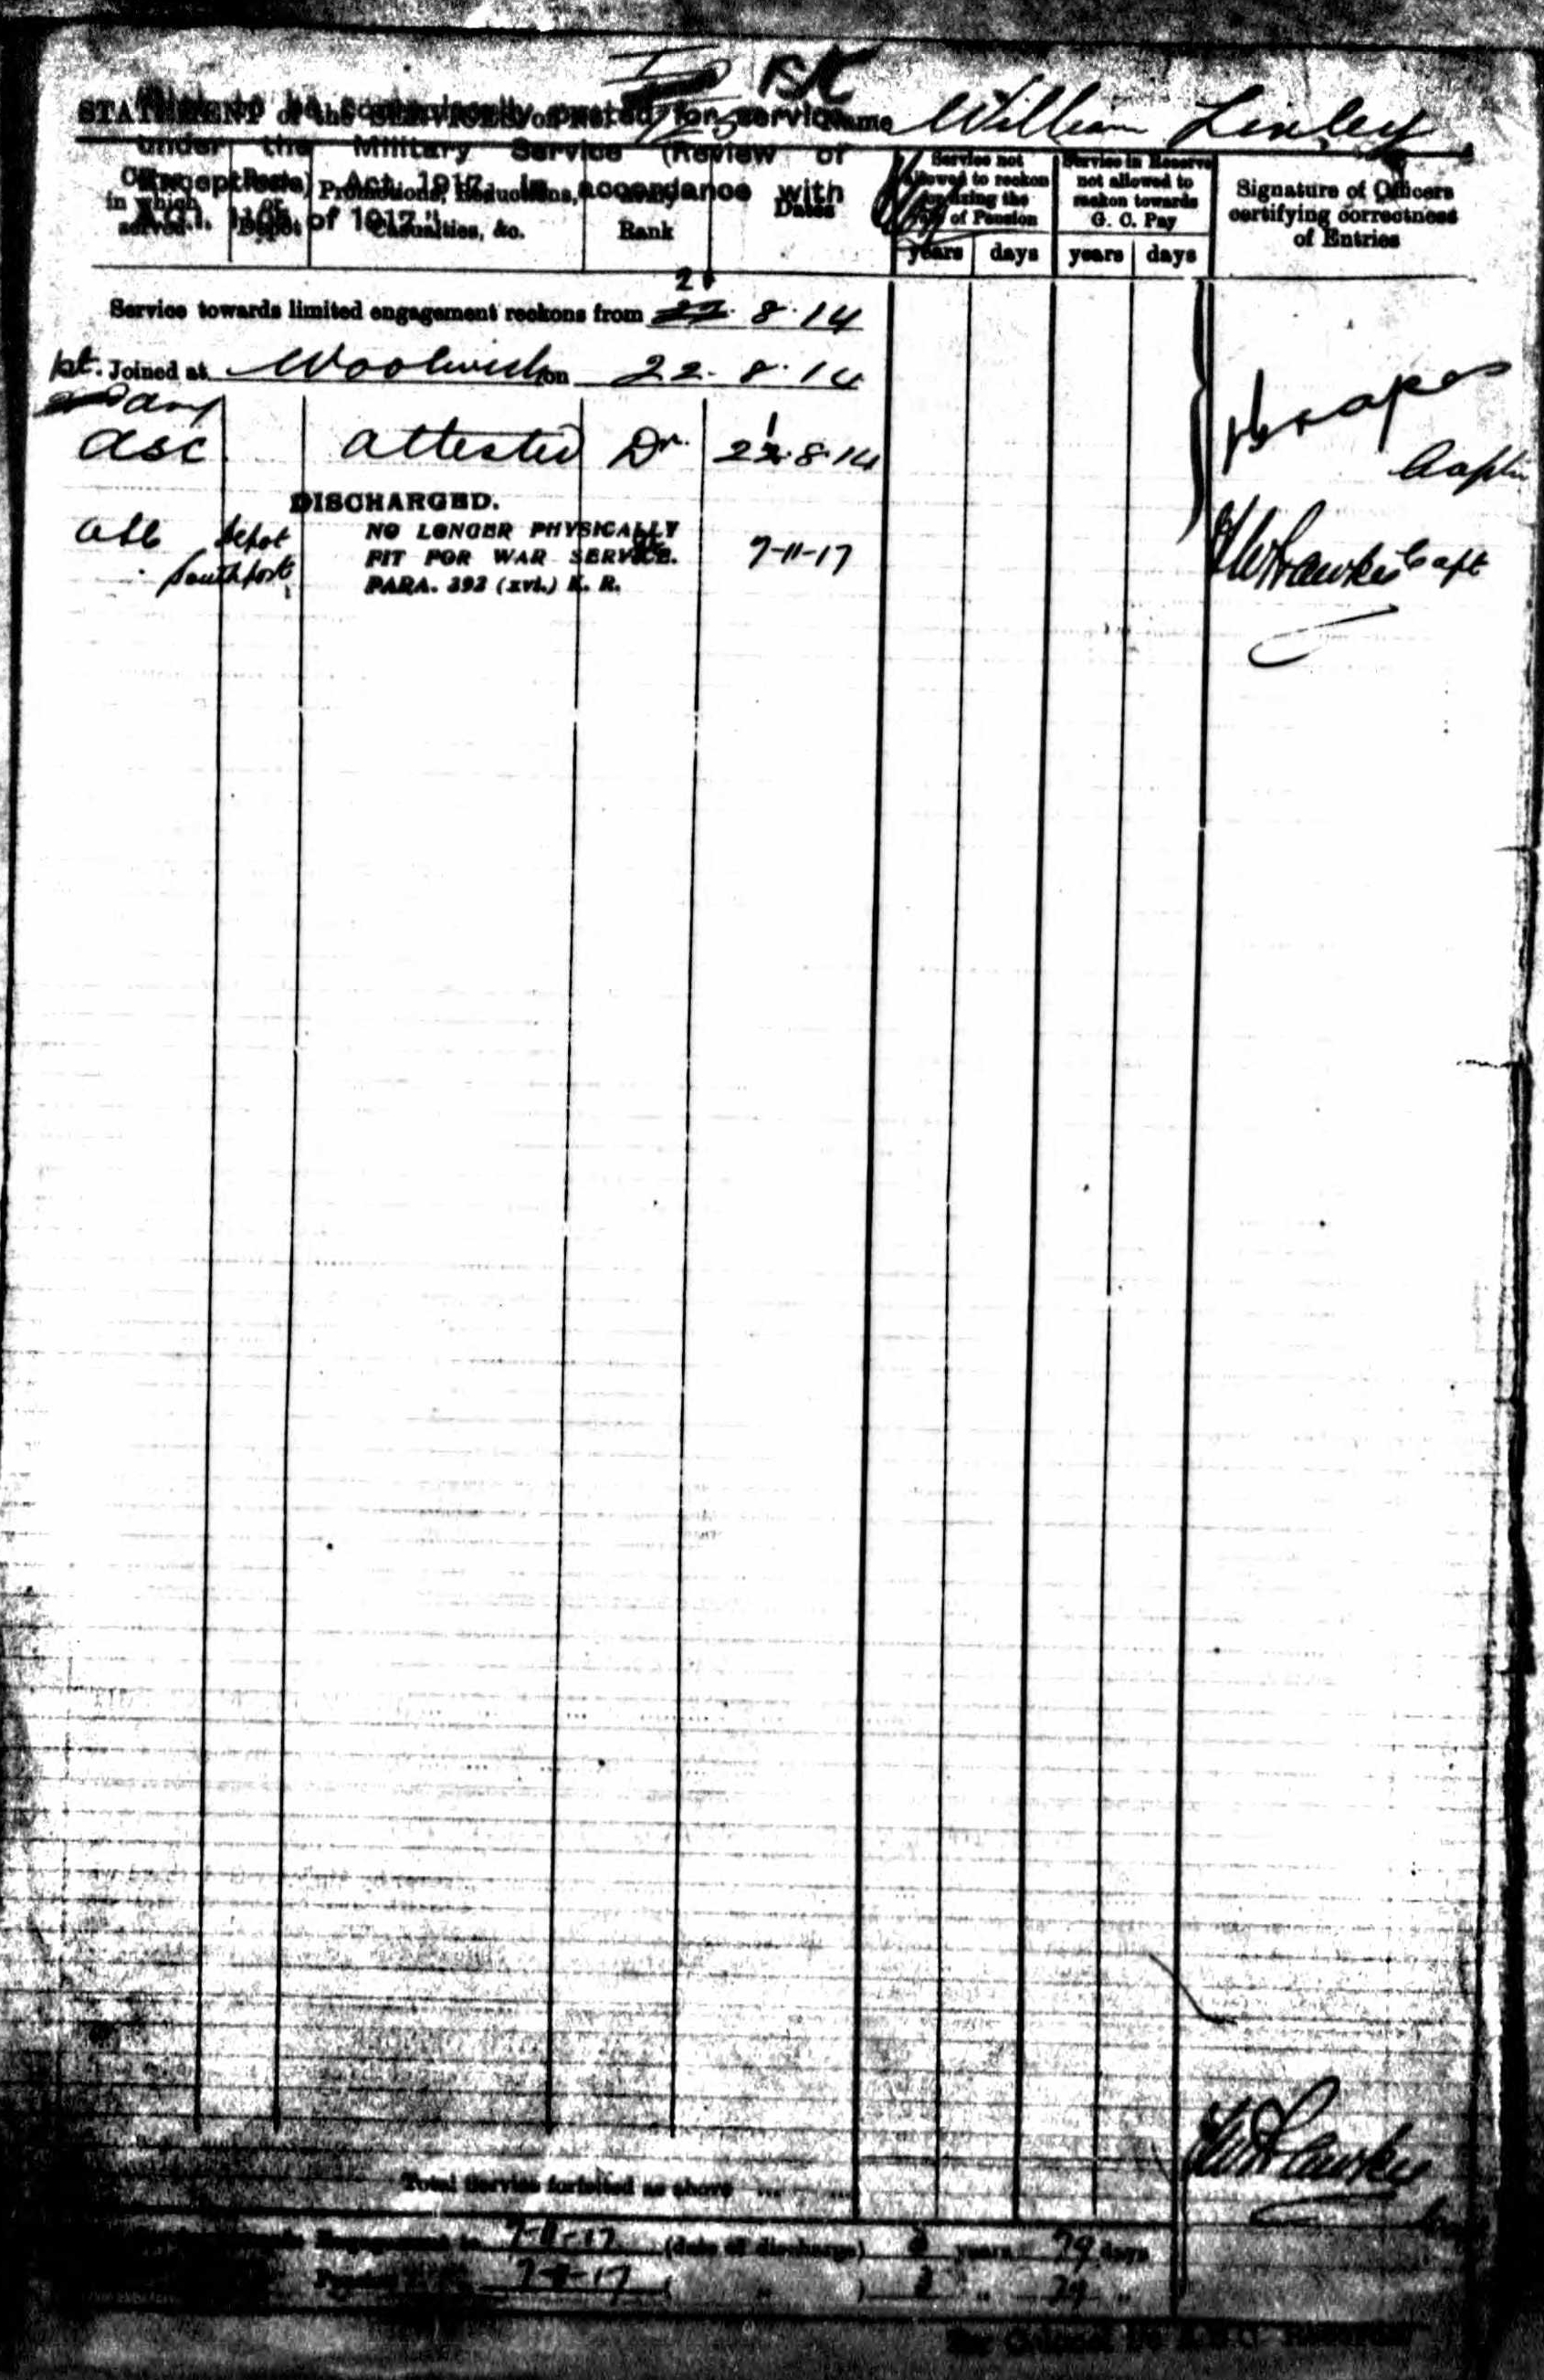 STATEMENT of the SERVICES of No. Name William Linley
to be provisionally posted for service
under the Military Service (Review of
Exceptions) Act 1917, in accordance with
A.C.I. of 1917."
Corps in which served
or Depot
Promotions, Reductions, Casualties, &c.
Rank
Dates
Service not allowed to reckon for fixing the of Pension
years days
Service in Reserve not allowed to reckon towards G. C. Pay
years days
Signature of Officers certifying correctness of Entries
Service towards limited engagement reckons from 8.14
Joined at Woolwich on 22.8.14
ASC attested Dr. 8.14
Captn
DISCHARGED.
ASC Depot Southport
NO LONGER PHYSICALLY
FIT FOR WAR SERVICE.
PARA. 392 (xvi.) K. R.
7-11-17
Hawkes Capt
Total Service forfeited as above ... ...
Hawkes
Engagement to 7-11-17 (date of discharge) 3 years 79 days
7-11-17 ( " ) 3 " 79 "